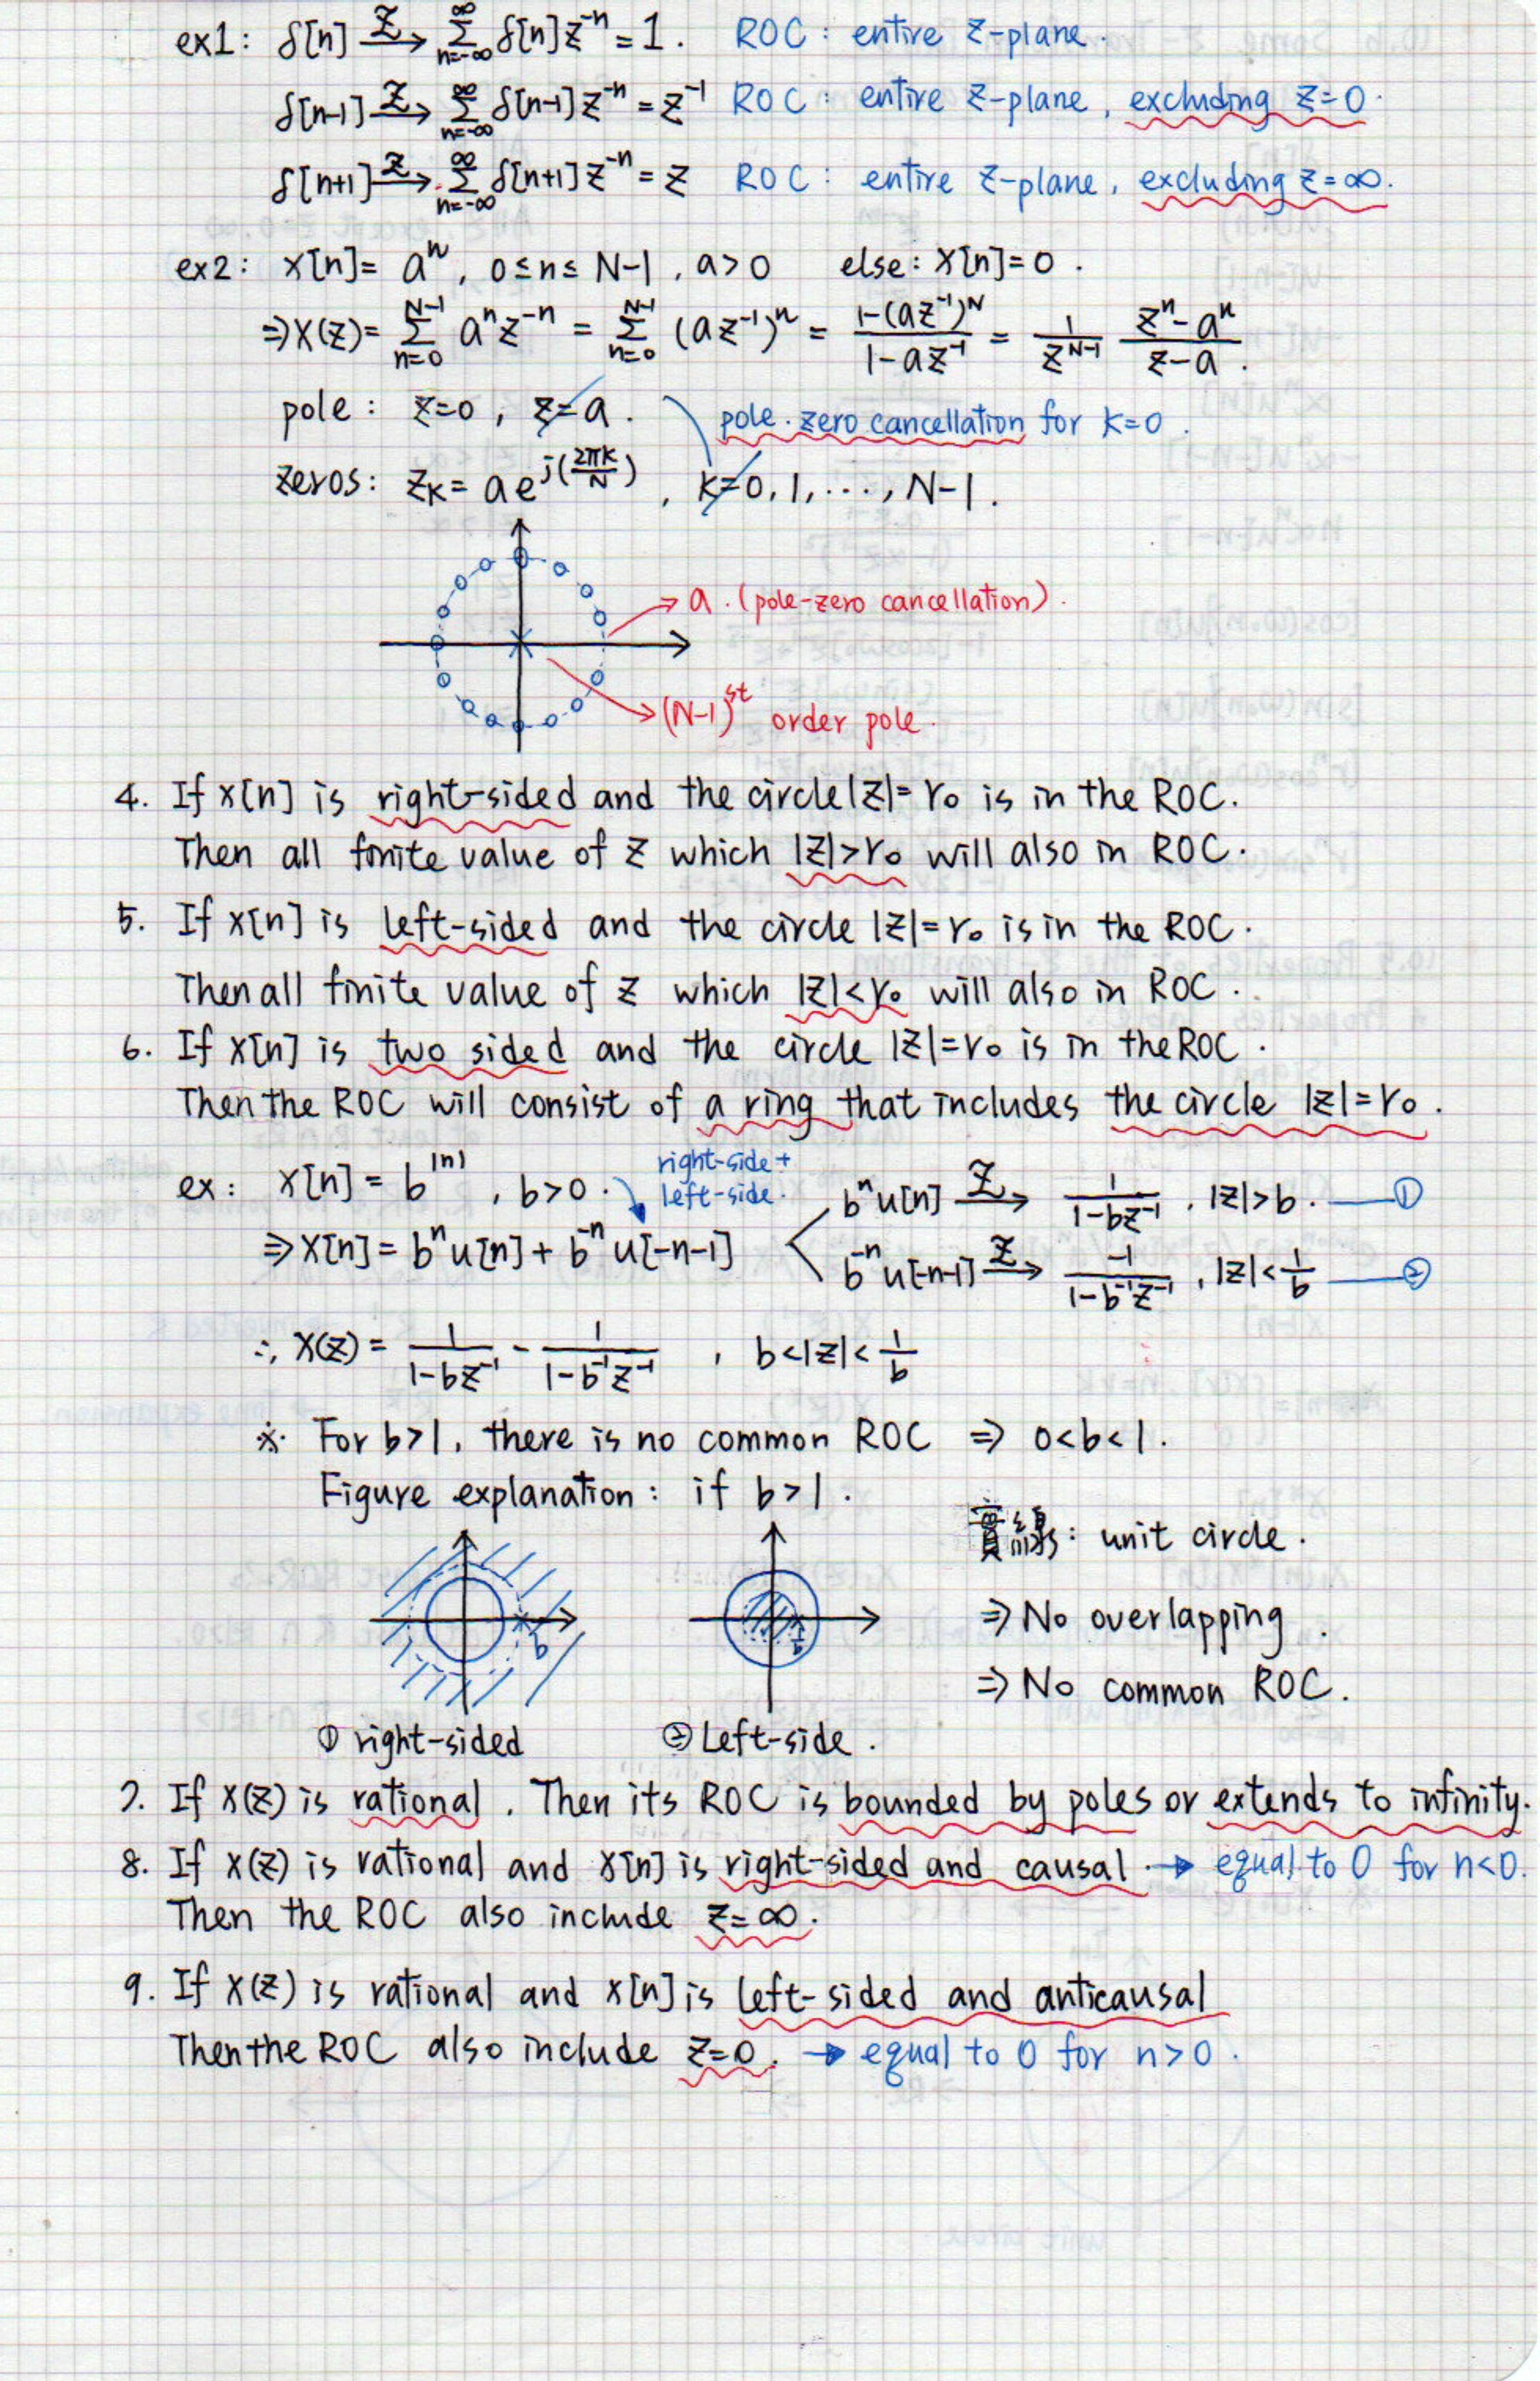 ex1: δ[n] —Z→ ∑_{n=-∞}^{∞} δ[n] z^{-n} = 1. ROC: entire z-plane.
δ[n-1] —Z→ ∑_{n=-∞}^{∞} δ[n-1] z^{-n} = z^{-1} ROC: entire z-plane, excluding z=0.
δ[n+1] —Z→ ∑_{n=-∞}^{∞} δ[n+1] z^{-n} = z ROC: entire z-plane, excluding z=∞.
ex2: x[n]= a^n, 0≤n≤ N-1, a>0 else: x[n]=0.
⇒X(z)= ∑_{n=0}^{N-1} a^n z^{-n} = ∑_{n=0}^{N-1} (az^{-1})^n = \frac{1-(az^{-1})^N}{1-az^{-1}} = \frac{1}{z^{N-1}} \frac{z^n-a^n}{z-a}.
pole: z=0, z=a. pole.zero cancellation for k=0.
zeros: z_k= ae^{j(\frac{2πk}{N})}, k=0,1,…,N-1.
a.(pole-zero cancellation).
(N-1)^{st} order pole.
4. If x[n] is right-sided and the circle |z|=r₀ is in the ROC.
Then all finite value of z which |z|>r₀ will also in ROC.
5. If x[n] is left-sided and the circle |z|=r₀ is in the ROC.
Then all finite value of z which |z|<r₀ will also in ROC.
6. If x[n] is two sided and the circle |z|=r₀ is in the ROC.
Then the ROC will consist of a ring that includes the circle |z|=r₀.
ex: x[n] = b^{|n|}, b>0. right-side + left-side.
b^n u[n] —Z→ \frac{1}{1-bz^{-1}}, |z|>b. —①
⇒x[n] = b^n u[n] + b^{-n} u[-n-1]
b^{-n} u[-n-1] —Z→ \frac{-1}{1-b^{-1}z^{-1}}, |z|<\frac{1}{b} —②
∴ X(z) = \frac{1}{1-bz^{-1}} - \frac{1}{1-b^{-1}z^{-1}}, b<|z|<\frac{1}{b}
※ For b>1, there is no common ROC ⇒ 0<b<1.
Figure explanation: if b>1.
實線: unit circle.
b
1/b
⇒ No overlapping.
⇒ No common ROC.
① right-sided ② Left-side.
7. If X(z) is rational. Then its ROC is bounded by poles or extends to infinity.
8. If X(z) is rational and x[n] is right-sided and causal. → equal to 0 for n<0.
Then the ROC also include z=∞.
9. If X(z) is rational and x[n] is left-sided and anticausal
Then the ROC also include z=0. → equal to 0 for n>0.